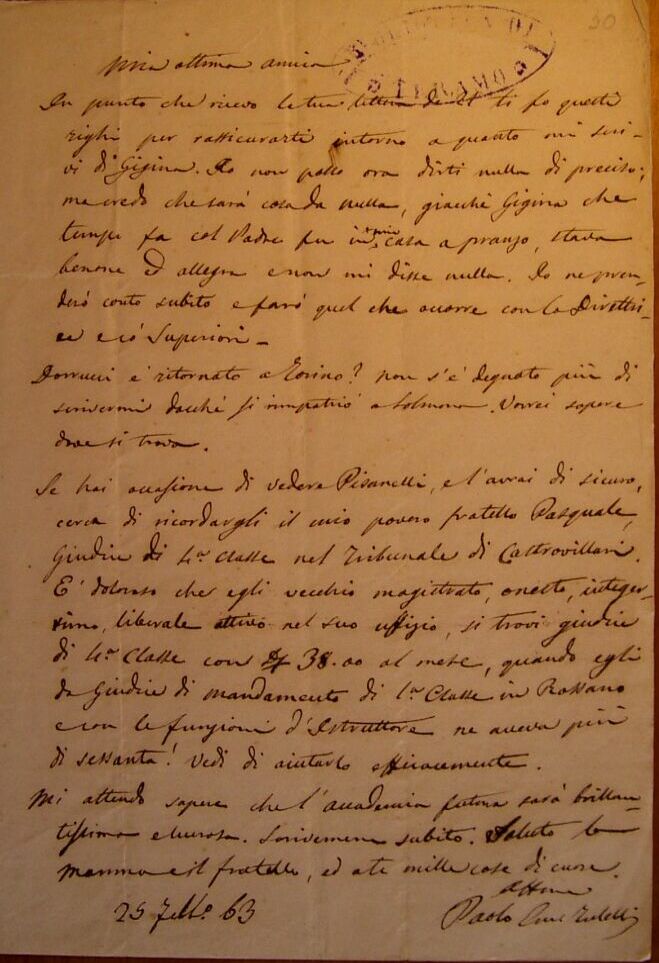 50
BIBLIOTECA DI
BERGAMO
Mia ottima amica
In punto che ricevo la tua lettera de 21 ti fo questi
righi per rassicurarti intorno a quanto mi scri-
vi di Gigina. Io non posso ora dirti nulla di preciso;
ma credo che sarà cosa da nulla, giacchè Gigina che
tempi fa col Padre fu in mia casa a pranzo, stava
benone ed allegra e non mi disse nulla. Io ne pren-
derò conto subito e farò quel che occorre con la Direttri-
ce e co' Superiori -
Dorrucci è ritornato a Torino? non s'è degnato più di
scrivermi dacchè si rimpatriò a Solmona. Vorrei sapere
dove si trova.
Se hai occasione di vedere Pisanelli, e l'avrai di sicuro,
cerca di ricordargli il mio povero fratello Pasquale,
Giudice di 4ª Classe nel Tribunale di Castrovillari.
E' doloroso che egli vecchio magistrato, onesto, integer-
rimo, liberale attivo nel suo uffizio, si trovi giudice
di 4ª Classe con 38.00 al mese, quando egli
da Giudice di mandamento di 1ª Classe in Rossano
e con le funzioni d'Istruttore ne aveva più
di sessanta! Vedi di aiutarlo efficacemente.
Mi attendo sapere che l'accademia futura sarà brillan-
tissima e lucrosa. Scrivemene subito. Saluto la
mamma e il fratello, ed a te mille cose di cuore.
25 7bre 63
Paolo